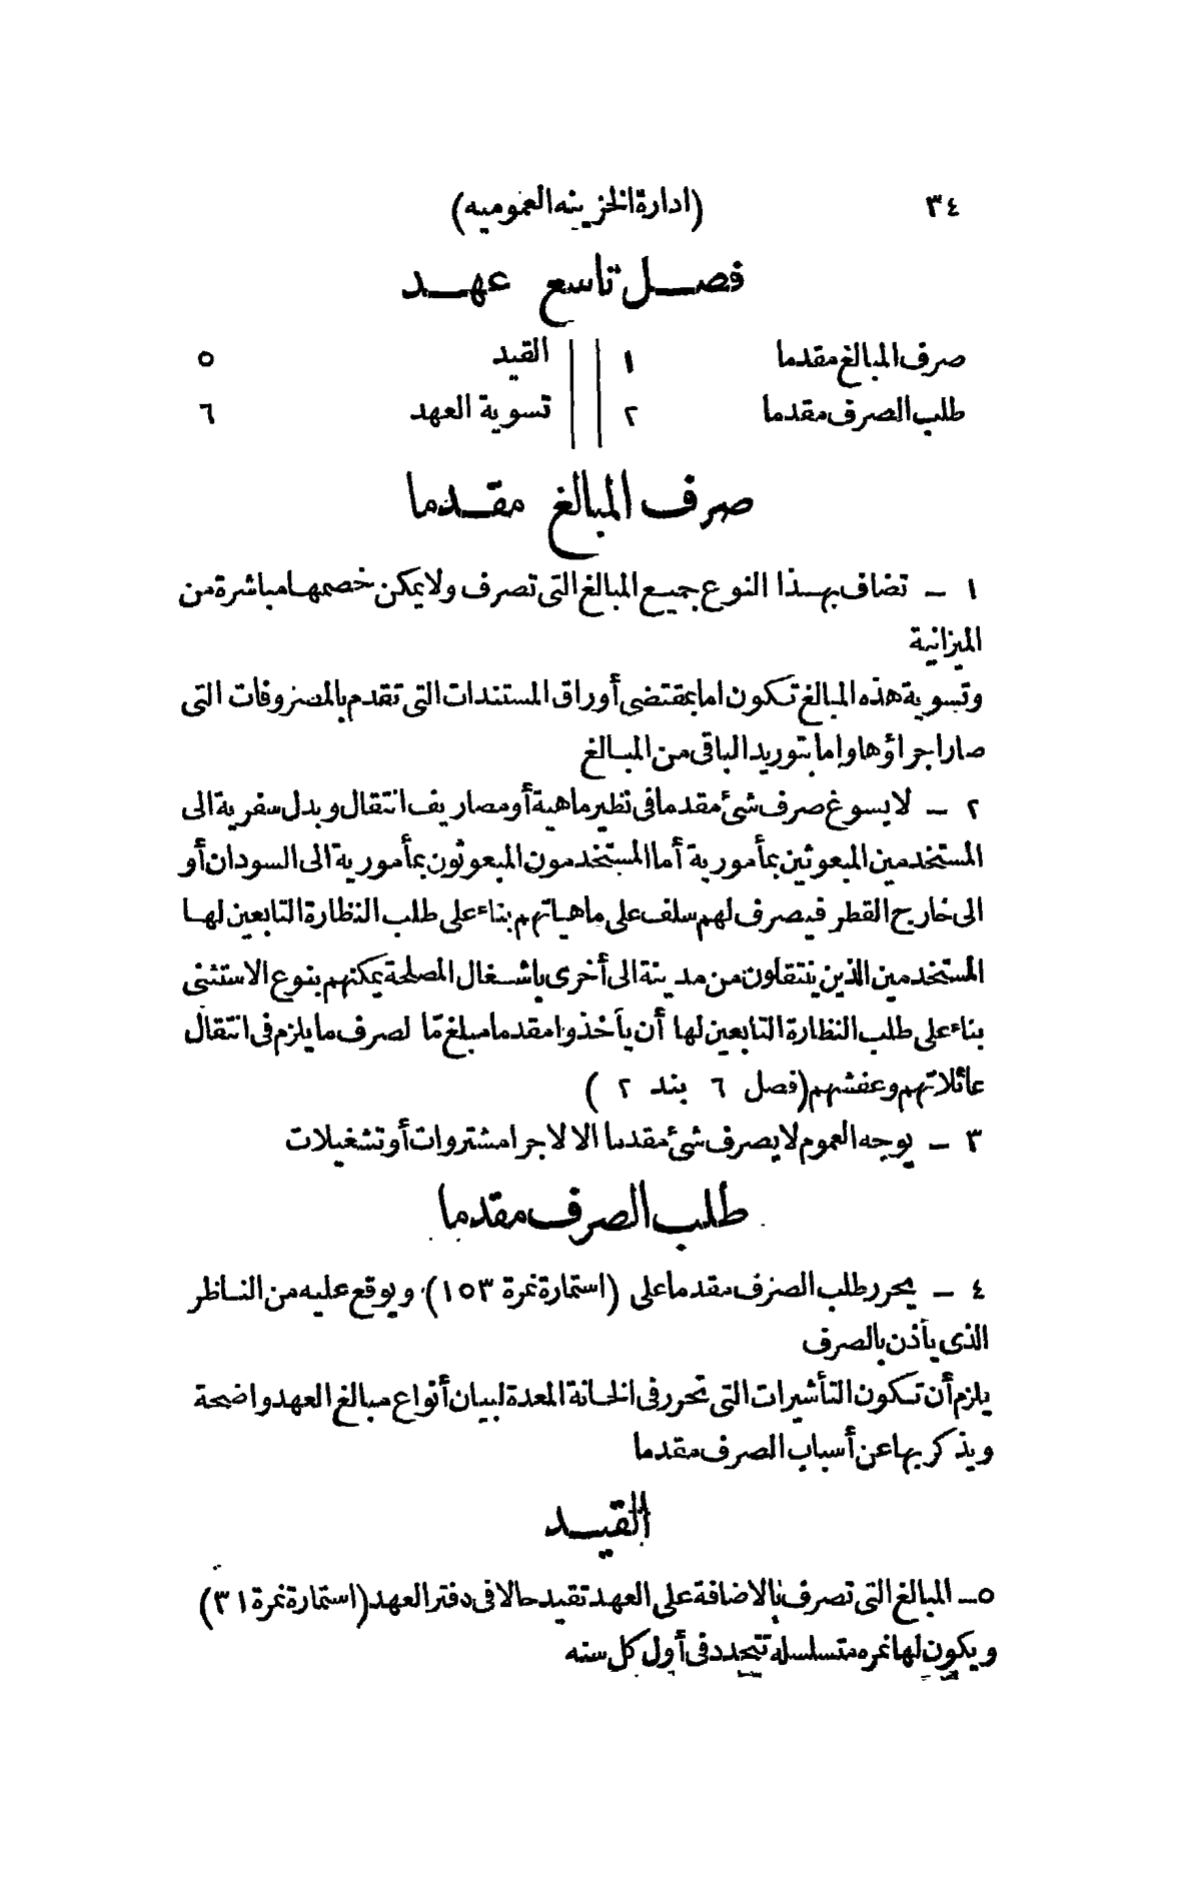 ٣٤ (ادارة الخزينه العموميه)
فصل تاسع عهد
صرف المبالغ مقدما ١ القيد ٥
طلب الصرف مقدما ٢ تسوية العهد ٦
صرف المبالغ مقدما
١ – تضاف بهذا النوع جميع المبالغ التى تصرف ولا يمكن خصمها مباشرة من
الميزانية
وتسوية هذه المبالغ تكون اما بمقتضى أوراق المستندات التى تقدم بالمصروفات التى
صار اجراؤها واما بتوريد الباقى من المبالغ
٢ – لا يسوغ صرف شئ مقدما فى نظير ماهية أو مصاريف انتقال وبدل سفرية الى
المستخدمين المبعوثين بمأمورية أما المستخدمون المبعوثون بمأمورية الى السودان أو
الى خارج القطر فيصرف لهم سلف على ماهياتهم بناء على طلب النظارة التابعين لها
المستخدمين الذين ينتقلون من مدينة الى أخرى باشغال المصلحة يمكنهم بنوع الاستثنى
بناء على طلب النظارة التابعين لها أن يأخذوا مقدما مبلغ مّا لصرف ما يلزم فى انتقال
عائلاتهم وعفشهم (فصل ٦ بند ٢ )
٣ – بوجه العموم لا يصرف شئ مقدما الا لاجرا مشتروات أو تشغيلات
طلب الصرف مقدما
٤ – يحرر طلب الصرف مقدما على (استمارة نمرة ١٥٣) ويوقع عليه من الناظر
الذى يأذن بالصرف
يلزم أن تكون التأشيرات التى تحرر فى الخانة المعدة لبيان أنواع مبالغ العهد واضحة
ويذكر بها عن أسباب الصرف مقدما
القيد
٥– المبالغ التى تصرف بالاضافة على العهد تقيد حالا فى دفتر العهد (استمارة نمرة ٣١)
ويكون لها نمره متسلسله تتجدد فى أول كل سنه